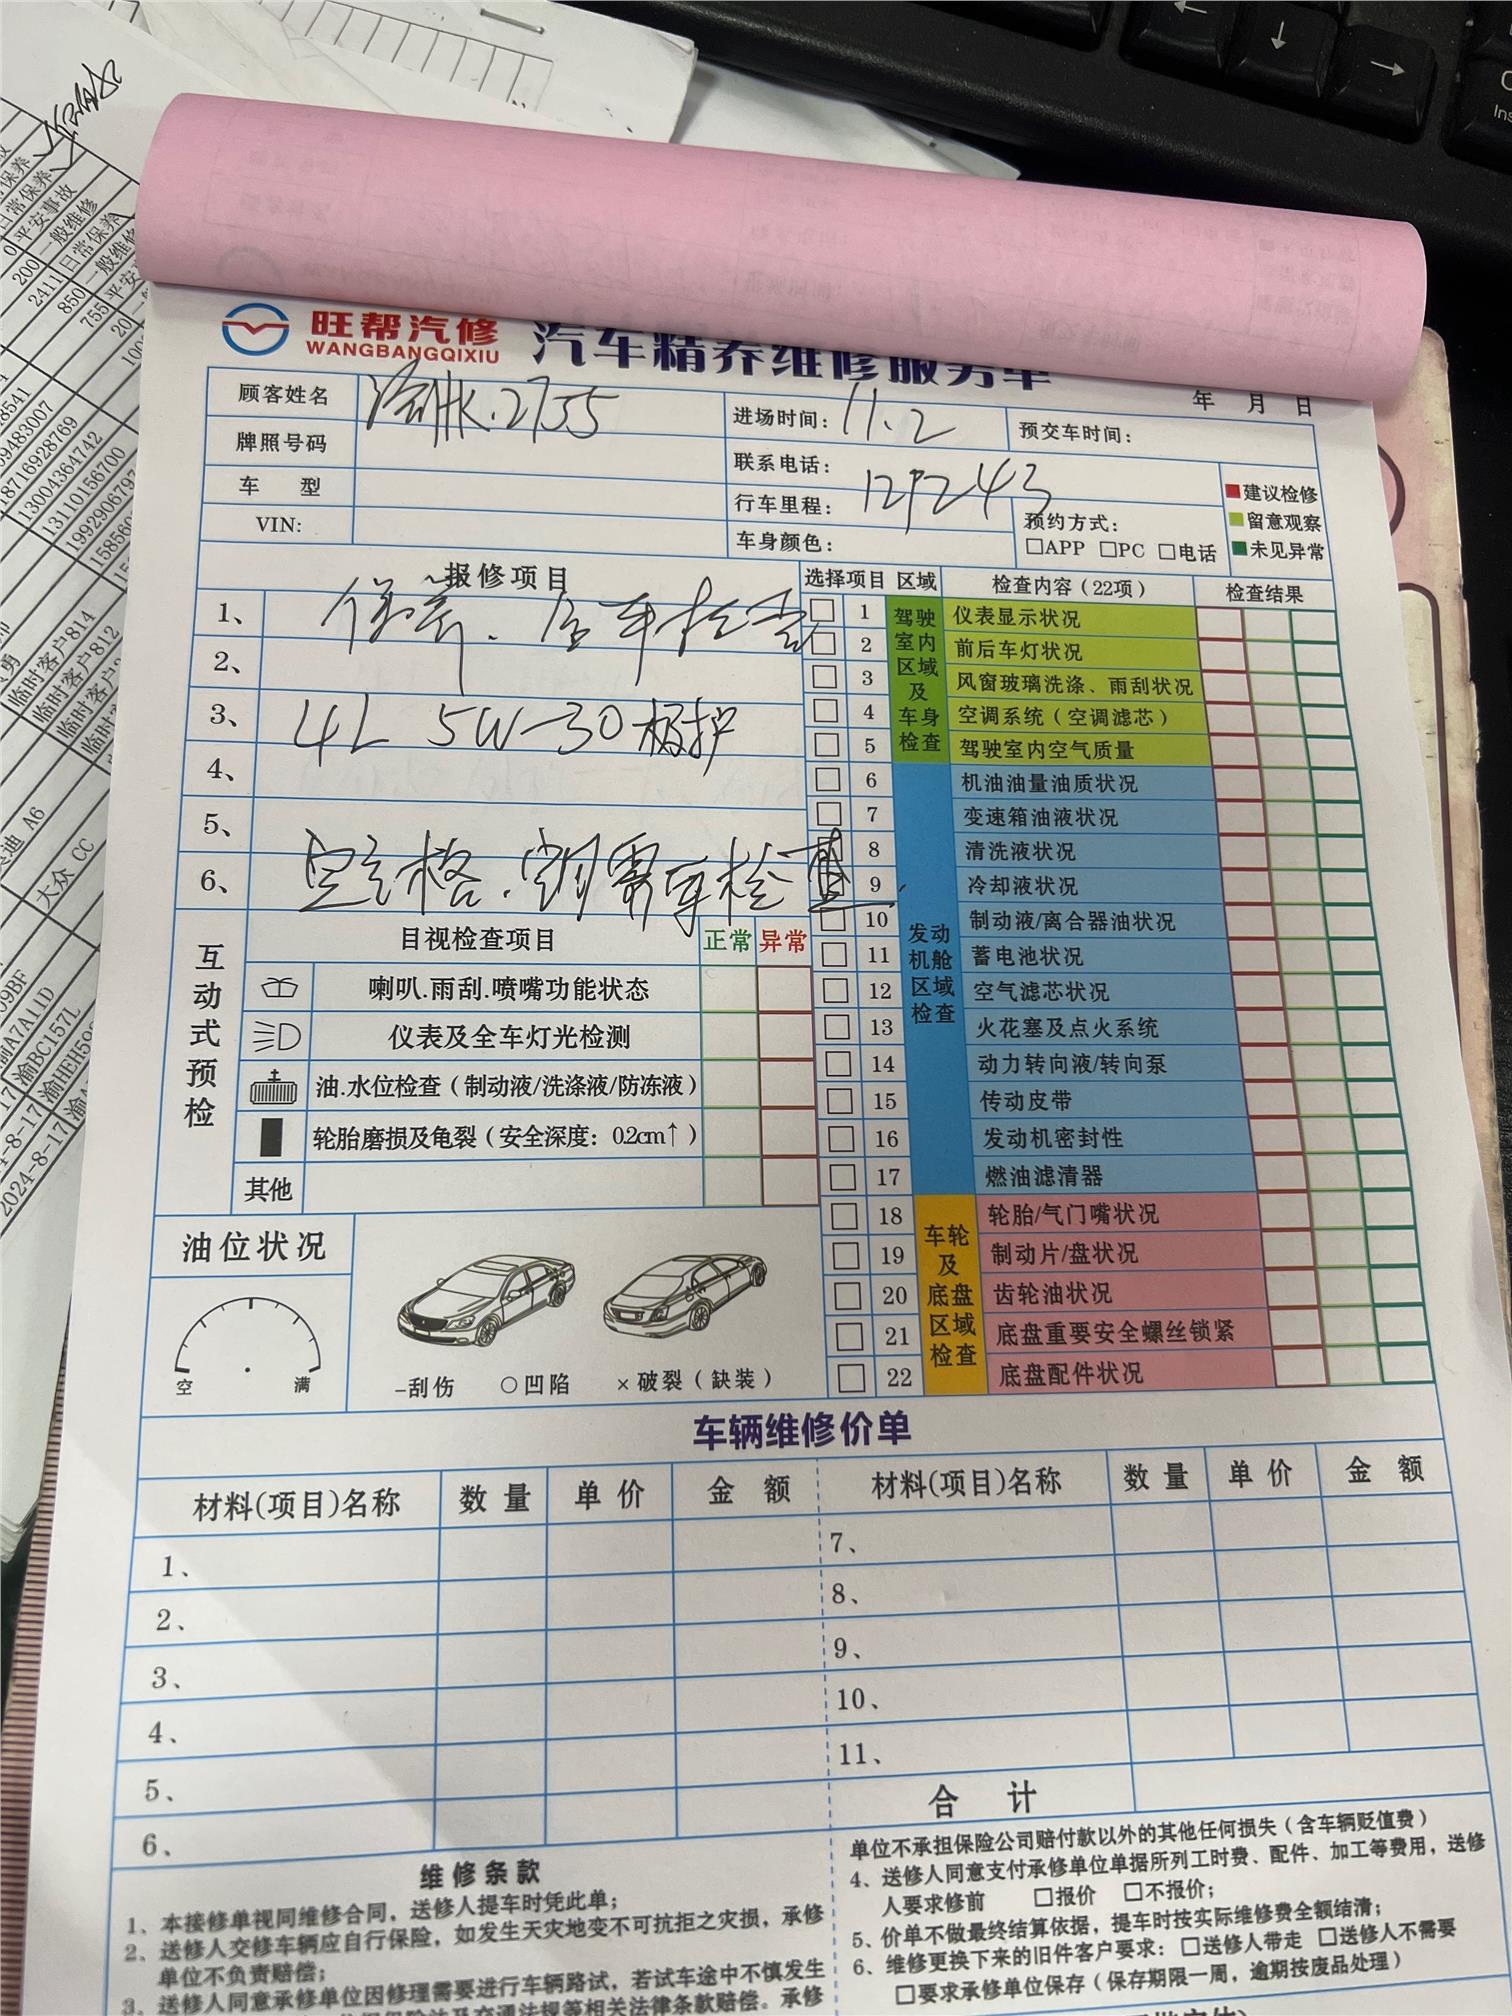 旺帮汽修
WANGBANGQIXIU
汽车精养维修服务单
年 月 日
顾客姓名
进场时间: 11.2
预交车时间:
牌照号码
联系电话:
车 型
行车里程: 129243
预约方式:
□APP □PC □电话
VIN:
车身颜色:
建议检修
留意观察
未见异常
报修项目
选择项目 区域 检查内容(22项) 检查结果
1、 保养. 全车检查
2、
3、 4L 5W-30极护
4、
5、
6、 空气格.
驾驶室内区域及车身检查
1 仪表显示状况
2 前后车灯状况
3 风窗玻璃洗涤、雨刮状况
4 空调系统(空调滤芯)
5 驾驶室内空气质量
发动机舱区域检查
6 机油油量油质状况
7 变速箱油液状况
8 清洗液状况
9 冷却液状况
10 制动液/离合器油状况
11 蓄电池状况
12 空气滤芯状况
13 火花塞及点火系统
14 动力转向液/转向泵
15 传动皮带
16 发动机密封性
17 燃油滤清器
车轮及底盘区域检查
18 轮胎/气门嘴状况
19 制动片/盘状况
20 齿轮油状况
21 底盘重要安全螺丝锁紧
22 底盘配件状况
互动式预检
目视检查项目 正常 异常
喇叭.雨刮.喷嘴功能状态
仪表及全车灯光检测
油.水位检查(制动液/洗涤液/防冻液)
轮胎磨损及龟裂(安全深度: 0.2cm↑)
其他
油位状况
空 满
-刮伤 ○凹陷 ×破裂(缺装)
车辆维修价单
材料(项目)名称 数量 单价 金额 材料(项目)名称 数量 单价 金额
1、 7、
2、 8、
3、 9、
4、 10、
5、 11、
6、 合 计
维修条款
1、本接修单视同维修合同，送修人提车时凭此单；
2、送修人交修车辆应自行保险，如发生天灾地变不可抗拒之灾损，承修
单位不负责赔偿；
3、送修人同意承修单位因修理需要进行车辆路试，若试车途中不慎发生
单位不承担保险公司赔付款以外的其他任何损失(含车辆贬值费)
4、送修人同意支付承修单位单据所列工时费、配件、加工等费用，送修
人要求修前 □报价 □不报价；
5、价单不做最终结算依据，提车时按实际维修费全额结清；
6、维修更换下来的旧件客户要求：□送修人带走 □送修人不需要
□要求承修单位保存(保存期限一周，逾期按废品处理)